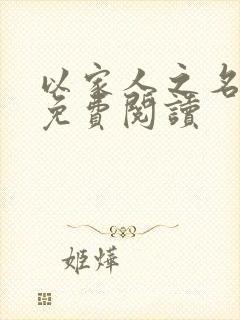 以家人之名
免費閱讀
姬燁